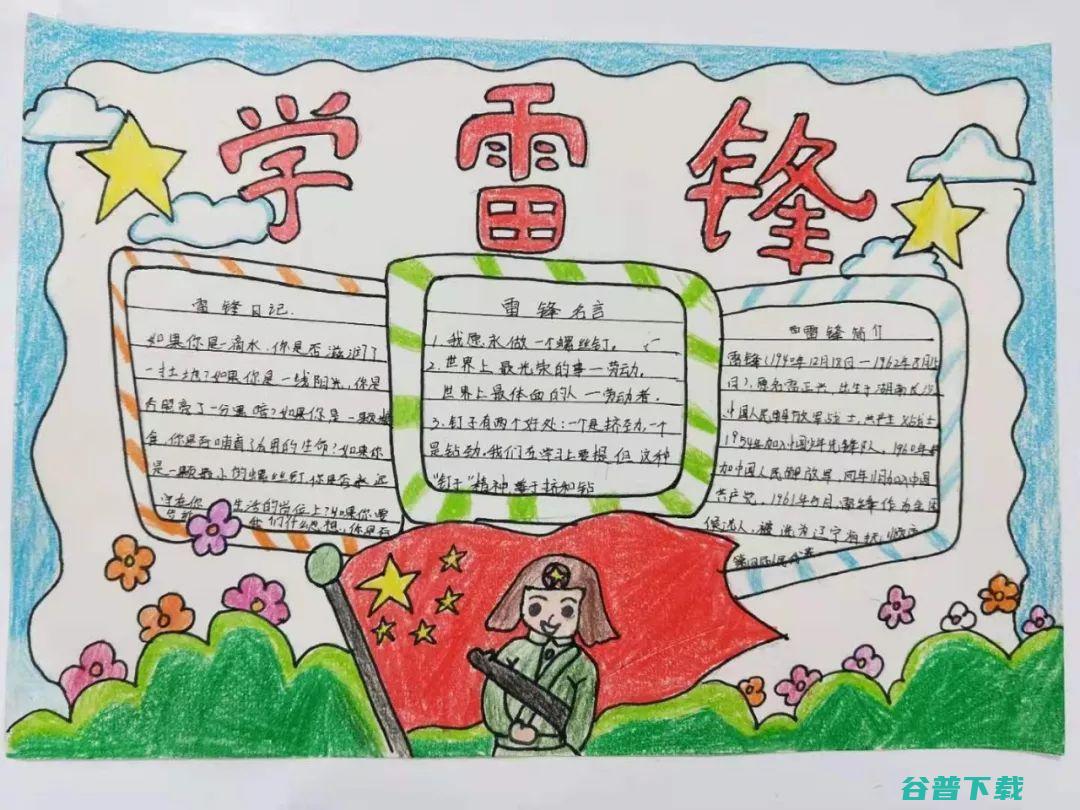 学雷锋
雷锋日记
如果你是一滴水，你是否滋润了
一寸土地？如果你是一线阳光，你是
否照亮了一分黑暗？如果你是一颗粮
食，你是否哺育了有用的生命？如果你
是一颗最小的螺丝钉你是否永远
守在你 生活的岗位上？如果你要
我们什么思想，你是否
雷锋名言
1、我愿永做一个螺丝钉。
2、世界上最光荣的事—劳动，
世界上最体面的人—劳动者。
3、钉子有两个好处：一个是挤劲，一个
是钻劲。我们在学习上要提倡这种
"钉子"精神，善于挤和钻
雷锋简介
雷锋（1940年12月18日—1962年8月15
日），原名雷正兴，出生于湖南长沙，
中国人民解放军战士，共产主义战士
1954年加入中国少年先锋队，1960年参
加中国人民解放军，同年11月加入中国
共产党，1961年5月，雷锋作为
候选人，被选为辽宁省抚顺市
谷普下载